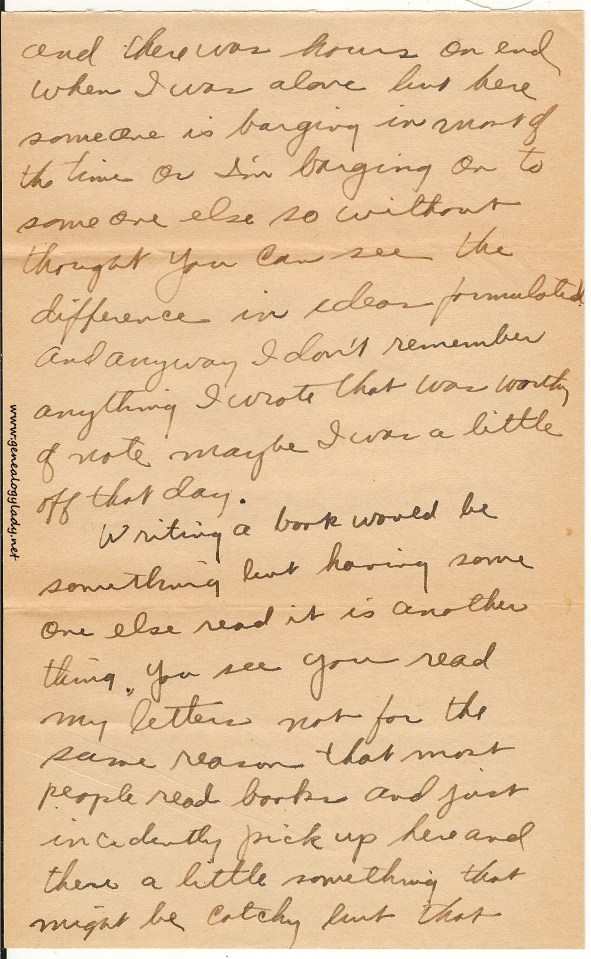 and there was hours on end
when I was alone but here
someone is barging in most of
the time or I'm barging on to
some one else so without
thought you can see the
difference in ideas formulated.
And anyway I don't remember
anything I wrote that was worthy
of note maybe I was a little
off that day.
Writing a book would be
something but having some
one else read it is another
thing. You see you read
my letters not for the
same reason that most
people read books and just
incidently pick up here and
there a little something that
might be catchy but that
www.genealogylady.net